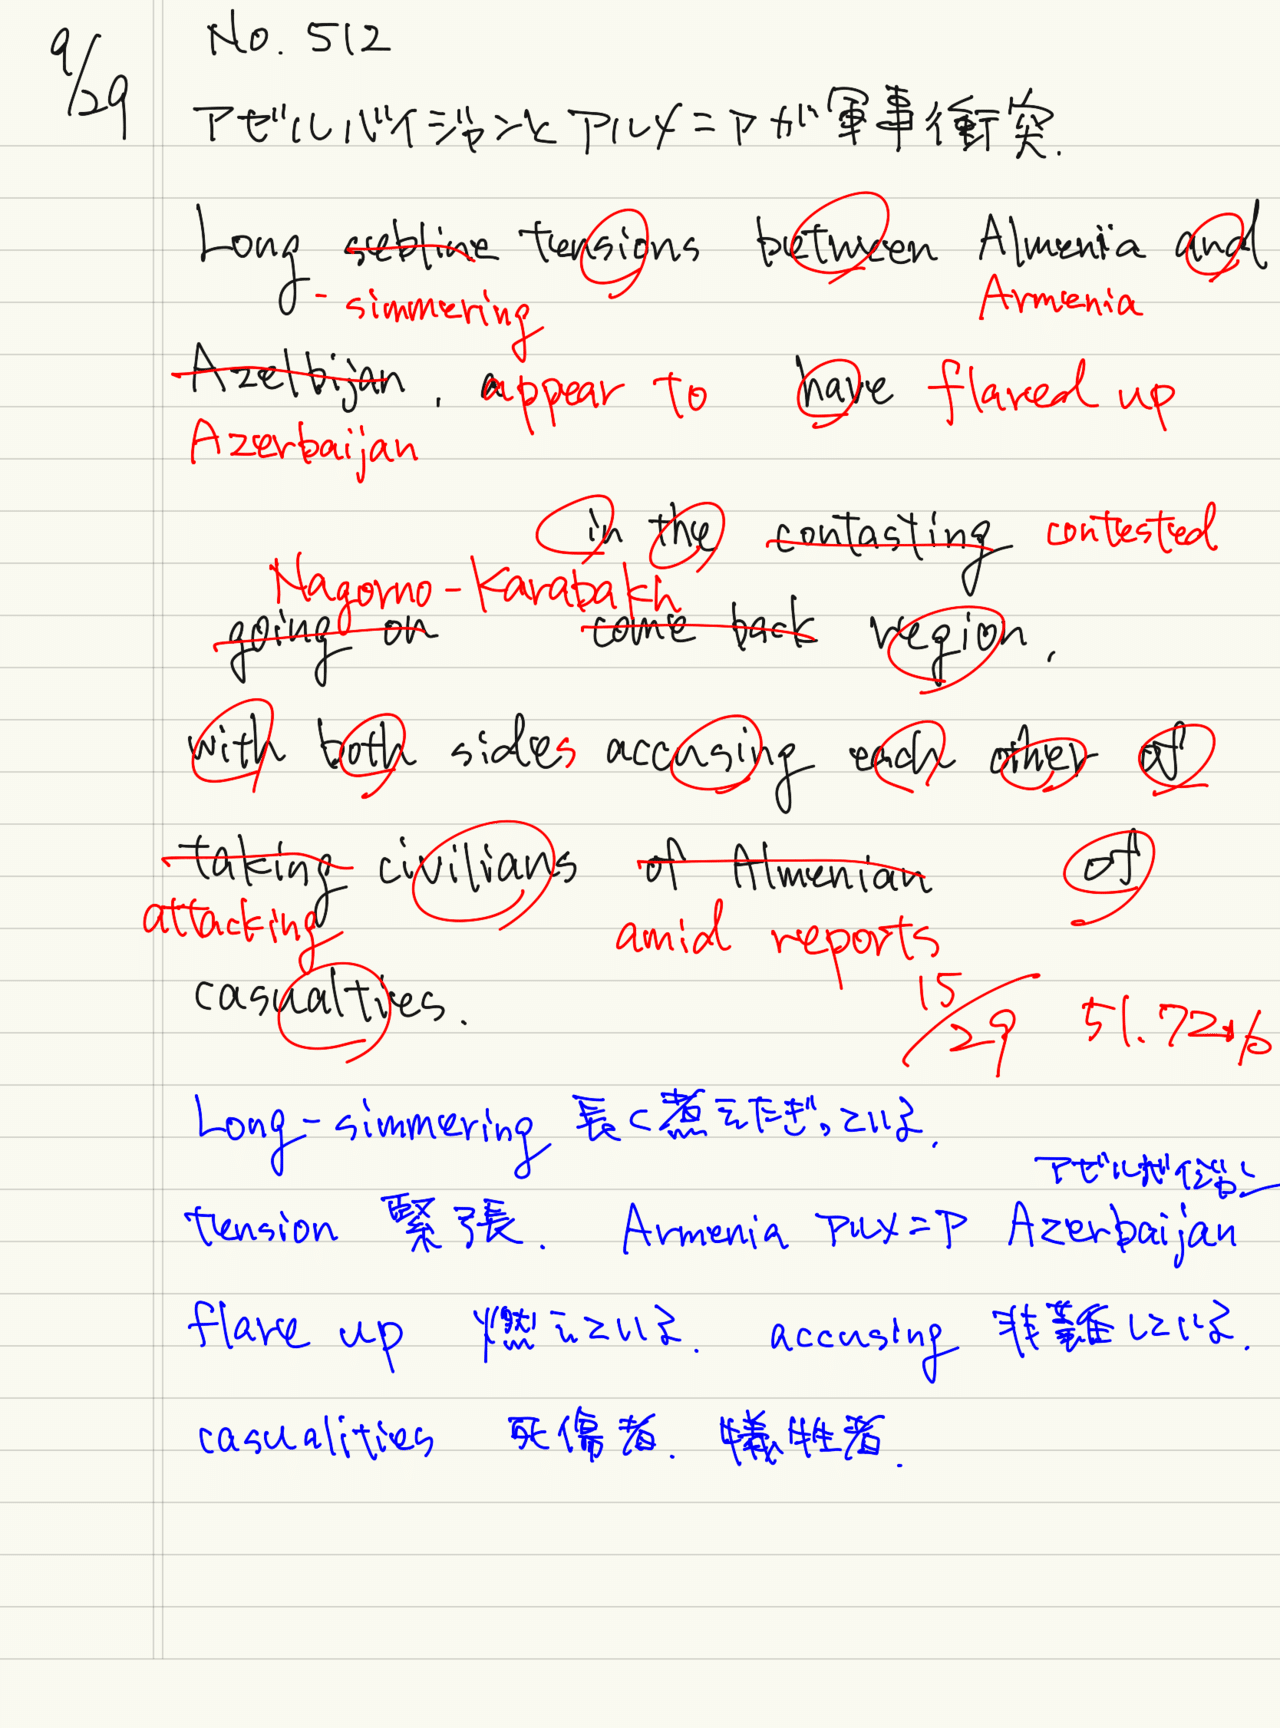 9/29
No. 512
アゼルバイジャンとアルメニアが軍事衝突.
Long sebline tensions between Almenia and
- simmering Armenia
Azelbijan, appear to have flared up
Azerbaijan
in the contasting contested
Nagorno-Karabakh
going on come back region,
with both sides accusing each other of
taking civilians of Almenian of
attacking amid reports
casualties.
15/29 51.72%
Long-simmering 長く煮えたぎっている.
アゼルバイジャン
tension 緊張. Armenia アルメニア Azerbaijan
flare up 燃えている. accusing 非難している.
casualities 死傷者. 犠牲者.